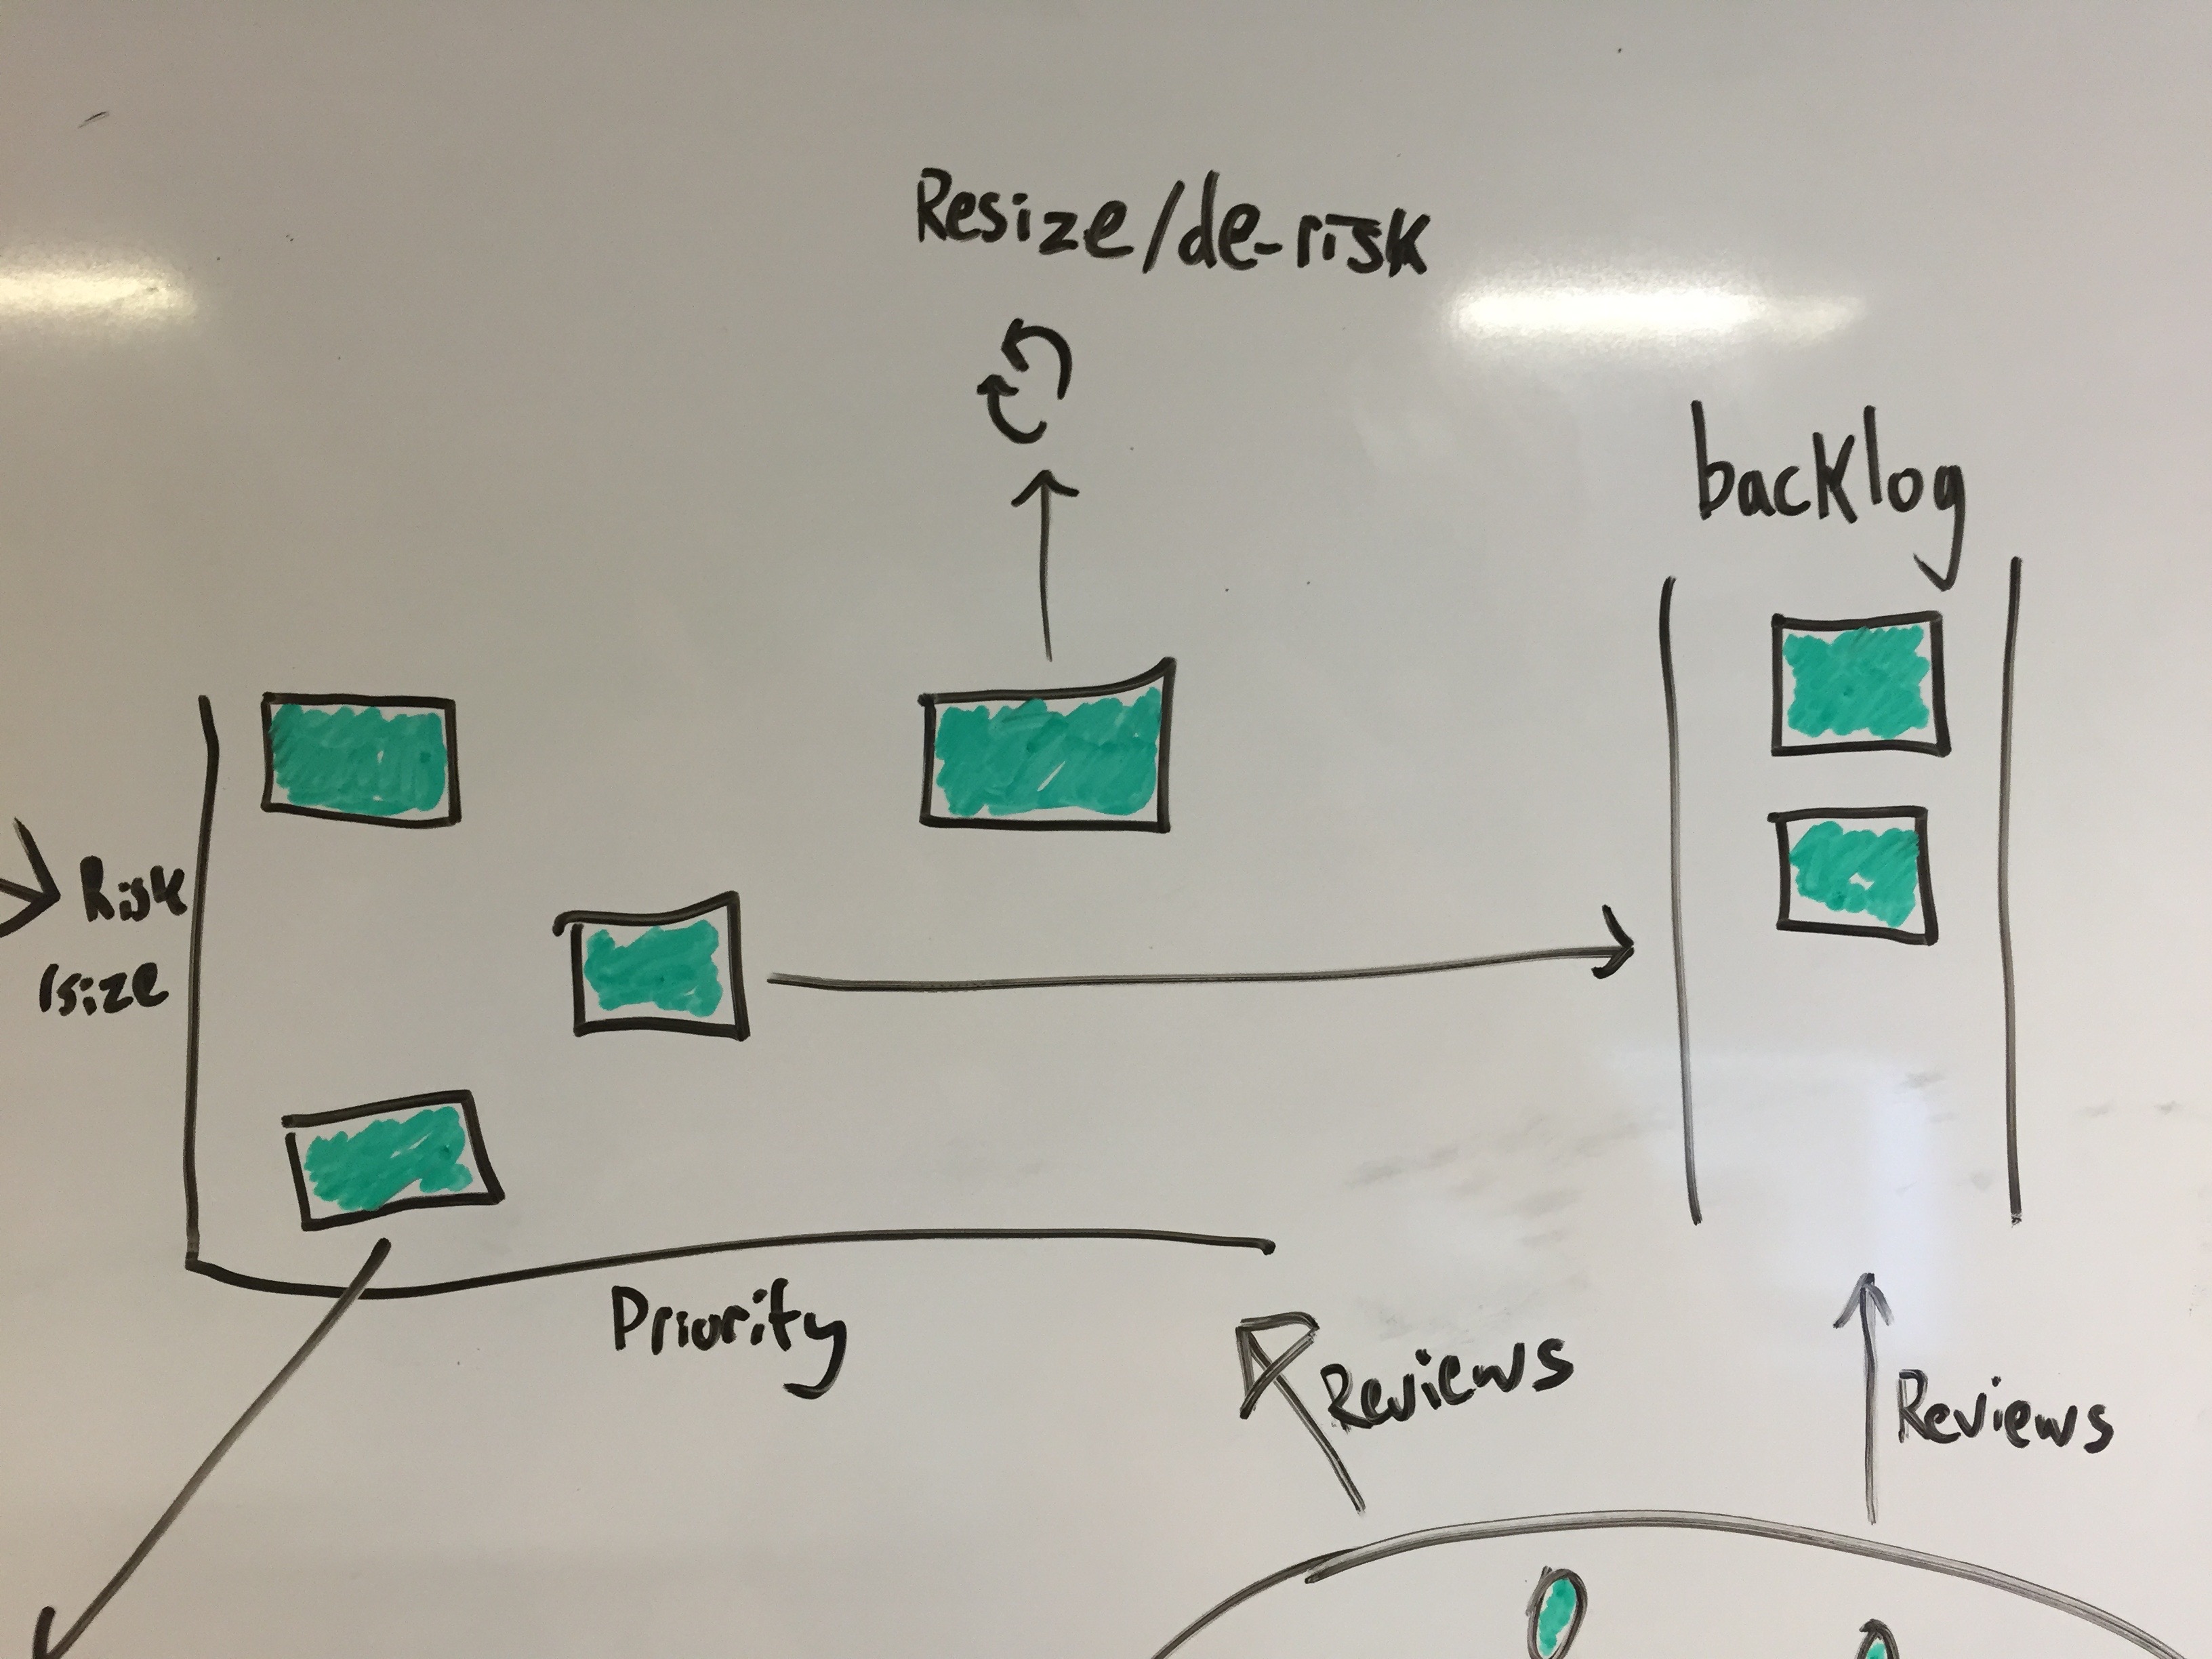 Resize/de-risk
backlog
Risk
/size
Priority
Reviews
Reviews